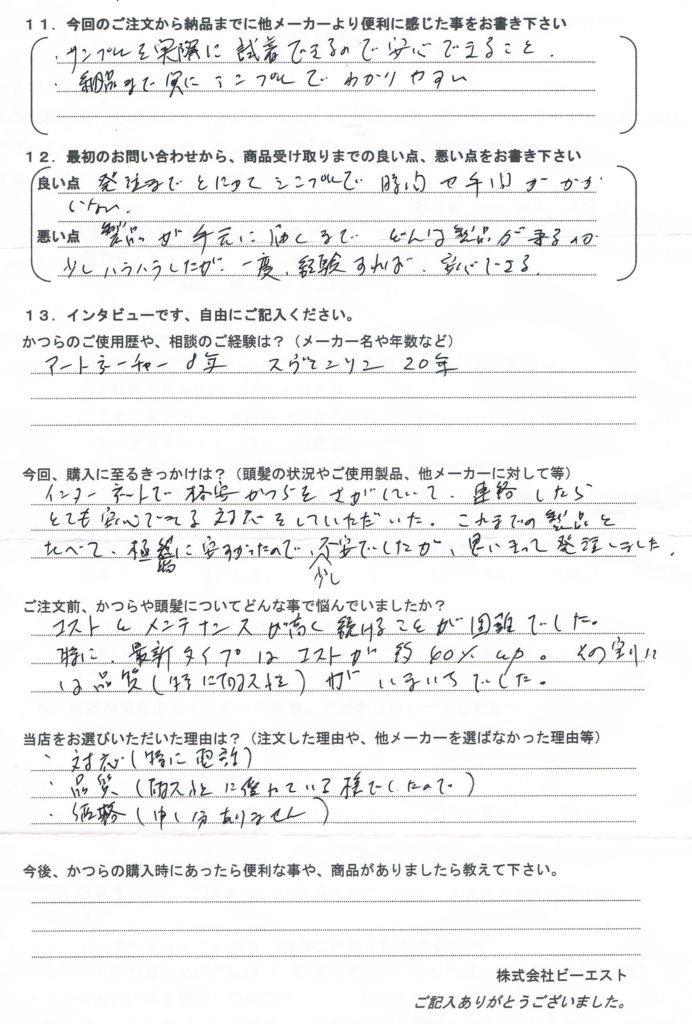 11．今回のご注文から納品までに他メーカーより便利に感じた事をお書き下さい
・サンプルを実際に試着できるので安心できること．
・納品まで実にシンプルでわかりやすい
12．最初のお問い合わせから、商品受け取りまでの良い点、悪い点をお書き下さい
良い点 発注までとにかくシンプルで時間や手間がかか
らない．
悪い点 製品が手元に届くまでどんな製品が来るのか
少しハラハラしたが、一度、経験すれば、安心できる．
13．インタビューです、自由にご記入ください。
かつらのご使用歴や、相談のご経験は？（メーカー名や年数など）
アートネーチャー 8年 スヴェンソン 20年
今回、購入に至るきっかけは？（頭髪の状況やご使用製品、他メーカーに対して等）
インターネットで格安かつらをさがしていて、連絡したら
とても安心できる対応をしていただいた。これまでの製品と
くらべて、極端に安すかったので、少し不安でしたが、思いきって発注しました．
ご注文前、かつらや頭髪についてどんな事で悩んでいましたか？
コストとメンテナンスが高く続けることが困難でした。
特に、最新タイプはコストが約40% up。その割に
は品質（特に耐久性）がいまいちでした。
当店をお選びいただいた理由は？（注文した理由や、他メーカーを選ばなかった理由等）
・対応（特に電話）
・品質（耐久性に優れている様でしたので）
・価格（申し分ありません）
今後、かつらの購入時にあったら便利な事や、商品がありましたら教えて下さい。
株式会社ビーエスト
ご記入ありがとうございました。